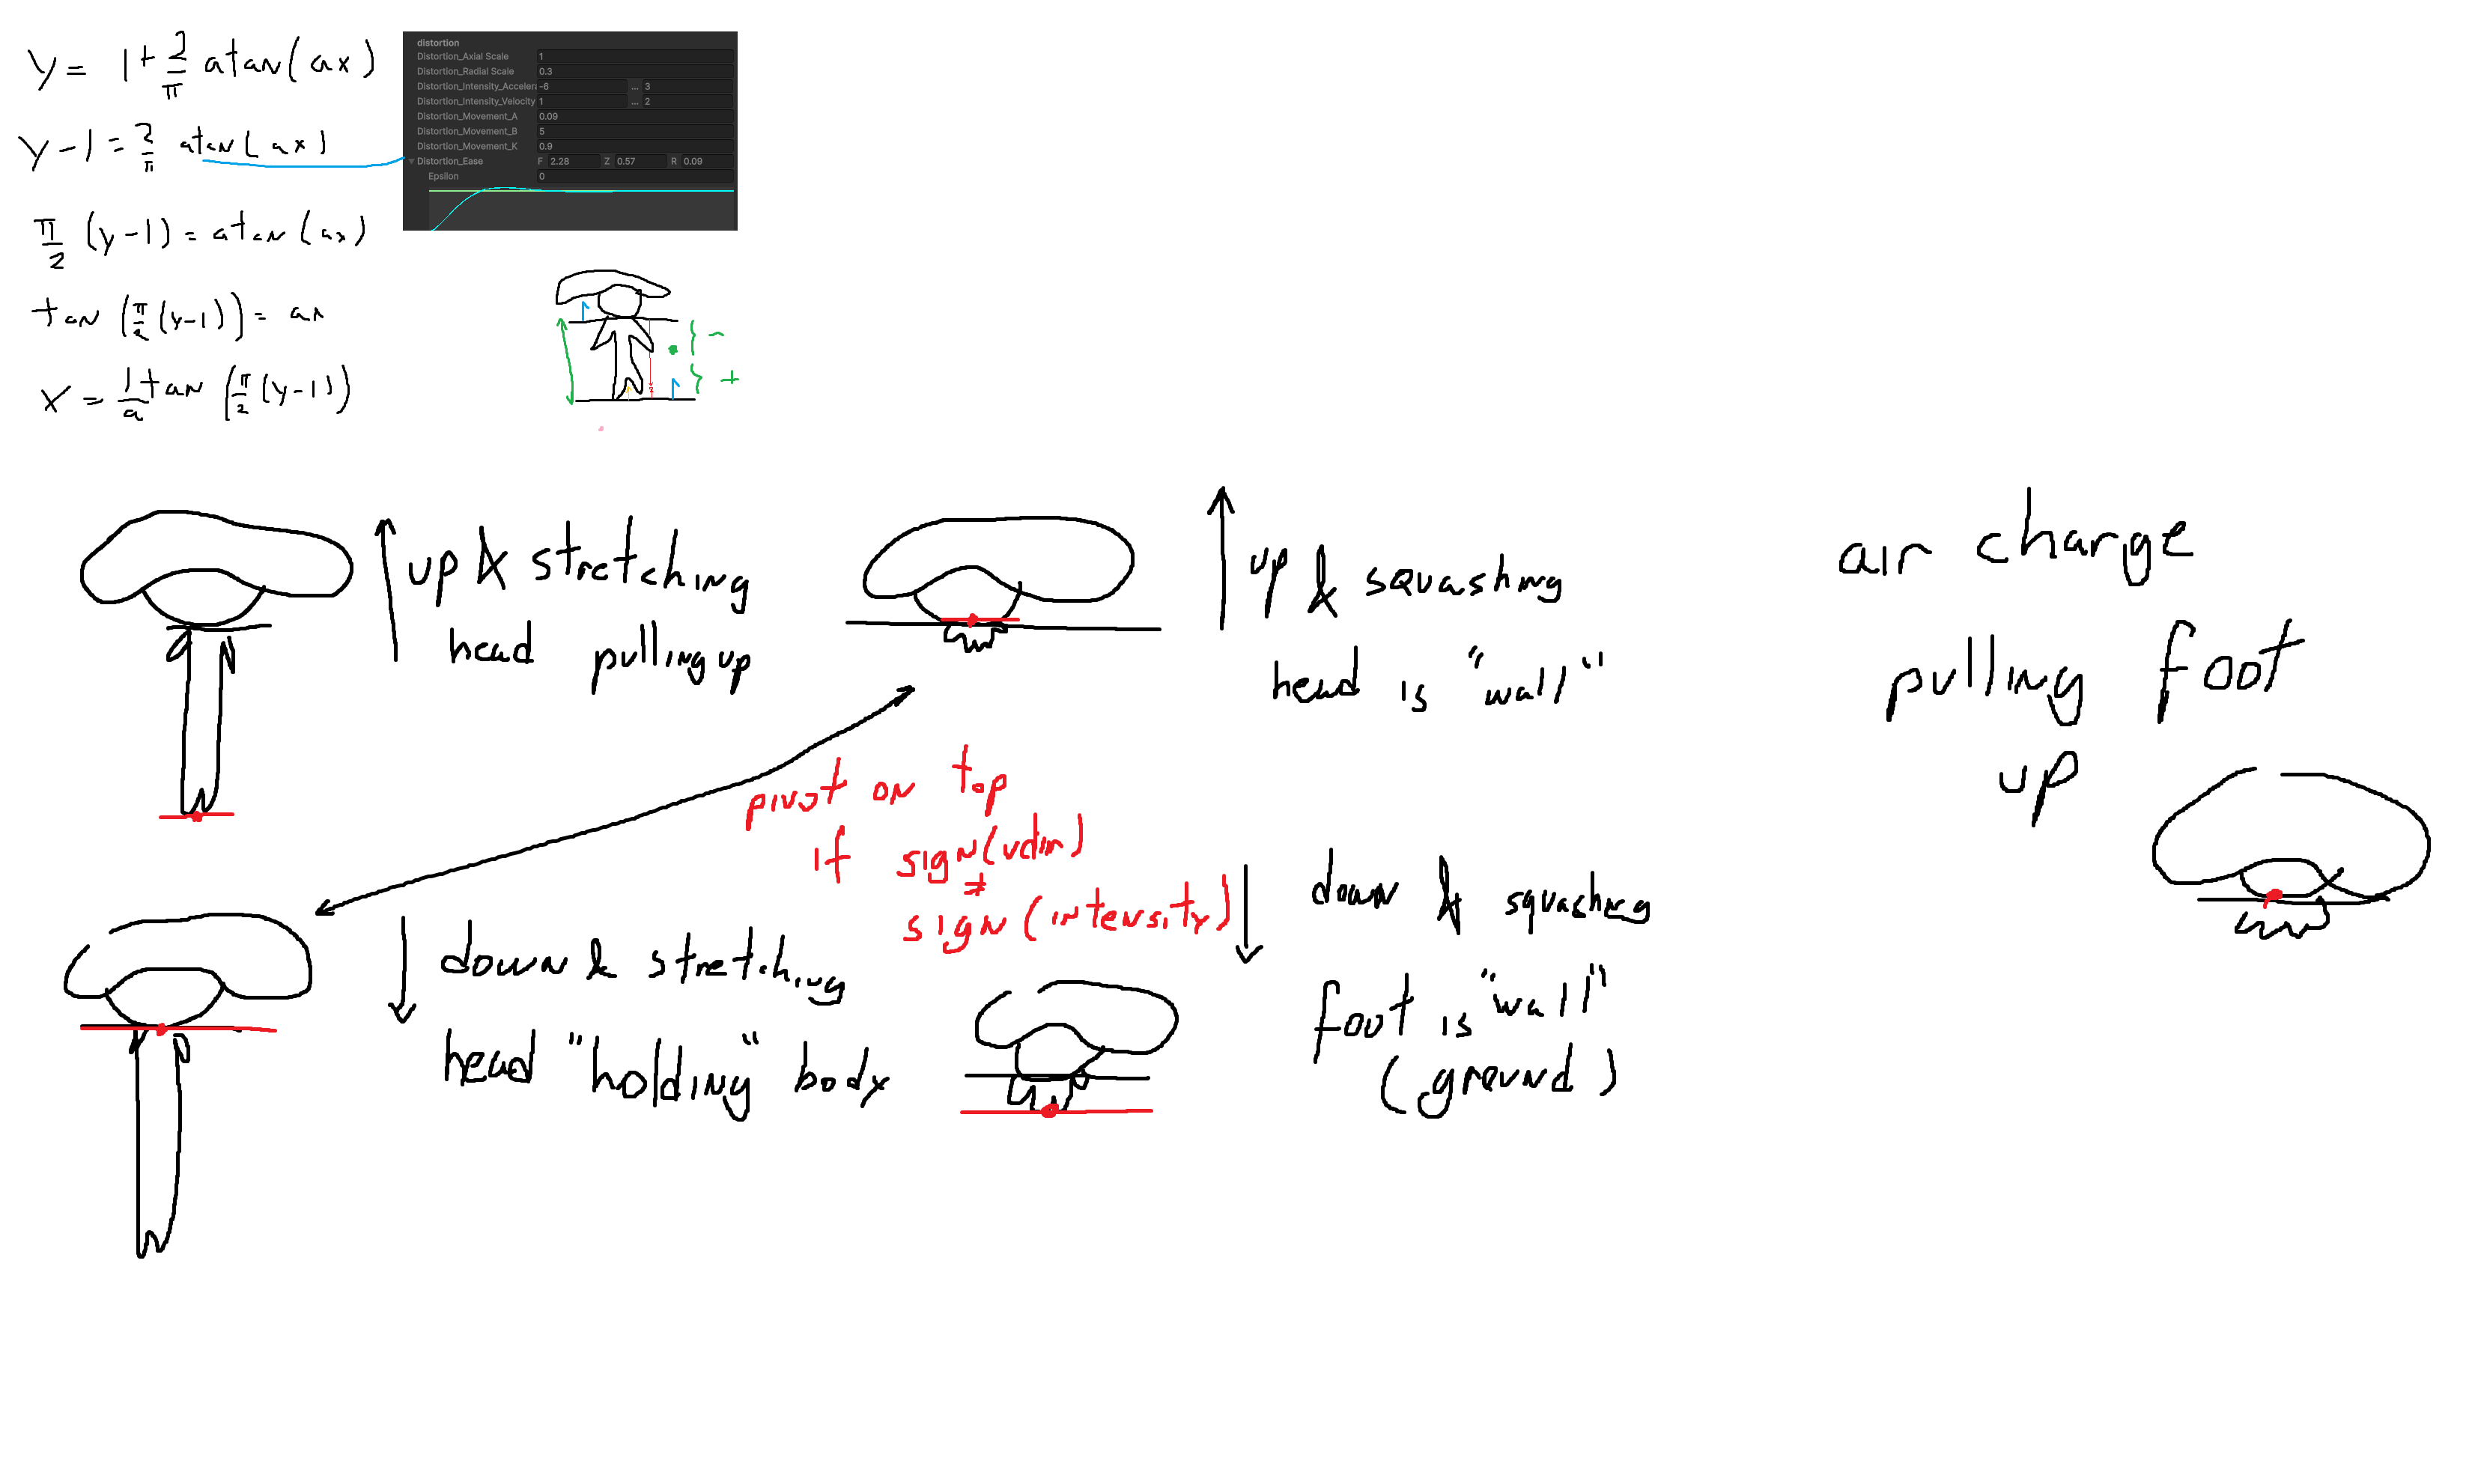 y = 1 + 2/π atan(ax)
y - 1 = 2/π atan(ax)
π/2 (y-1) = atan(ax)
tan(π/2 (y-1)) = ax
x = 1/a tan(π/2 (y-1))
distortion
Distortion_Axial Scale 1
Distortion_Radial Scale 0.3
Distortion_Intensity_Acceler -6 ... 3
Distortion_Intensity_Velocity 1 ... 2
Distortion_Movement_A 0.09
Distortion_Movement_B 5
Distortion_Movement_K 0.9
Distortion_Ease F 2.28 Z 0.57 R 0.09
Epsilon 0
-
+
up & stretching
head pulling up
up & squashing
head is "wall"
air charge
pulling foot
up
pivot on top
if sign(vdim)
≠
sign(intensity)
down & stretching
head "holding" body
down & squashing
foot is "wall"
(ground)